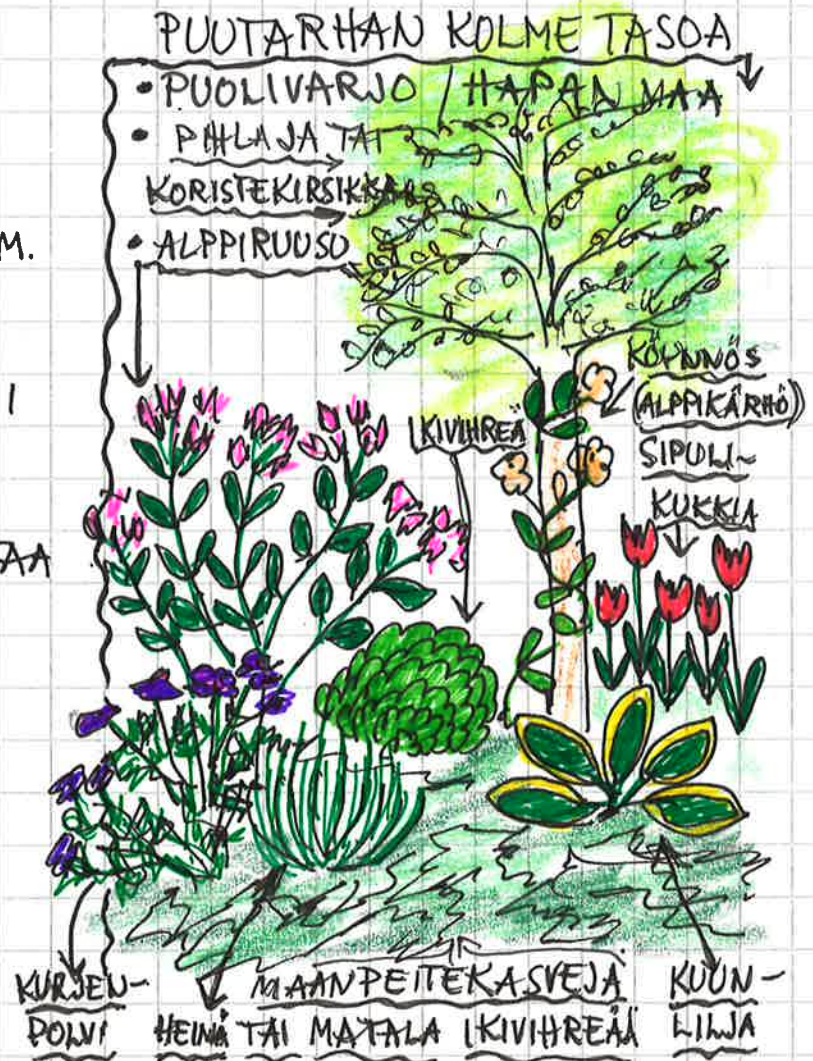 PUUTARHAN KOLME TASOA
• PUOLIVARJO / HAPAN MAA
• PIHLAJA TAI
KORISTEKIRSIKKA
• ALPPIRUUSU
M.
I
KÖYNNÖS
(ALPPIKÄRHÖ)
IKIVIHREÄ
SIPULI-
KUKKIA
AA
KURJEN-
POLVI
MAANPEITEKASVEJA
HEINÄ TAI MATALA IKIVIHREÄÄ
KUUN-
LILJA